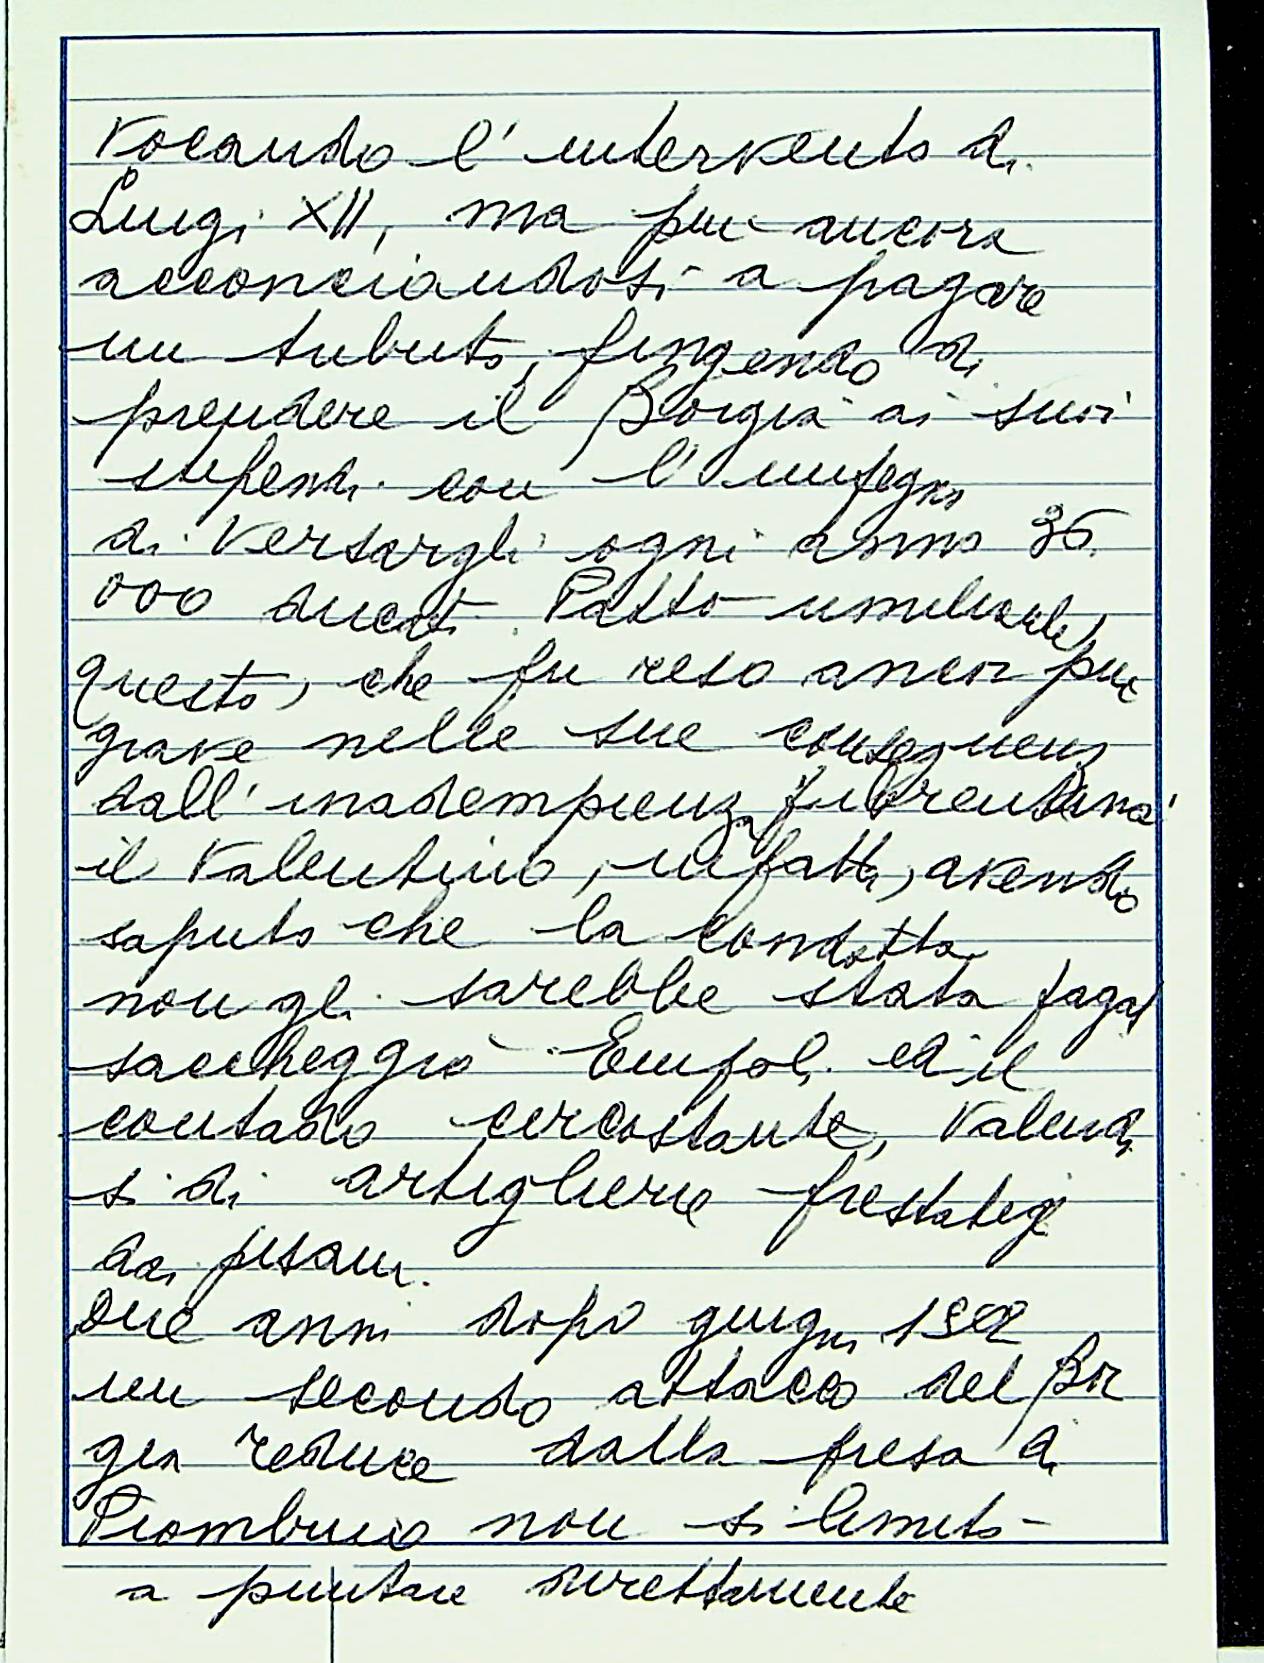 vocando l'intervento di
Luigi XII, ma più ancora
acconciandosi a pagare
un tributo, fingendo di
prendere il Borgia ai suoi
stipendi con l'impegno
di versargli ogni anno 36.
000 ducati. Patto umiliante,
questo, che fu reso ancor più
grave nelle sue conseguenz
dall'inadempienza fiorentina:
il Valentino, infatti, avendo
saputo che la condotta
non gli sarebbe stata pagat
saccheggiò Empoli ed il
contado circostante, valend
si di artiglierie prestategli
dai pisani.
Due anni dopo giugno 1502
un secondo attacco del Bor
gia reduce dalla presa di
Piombino non si limitò
a puntare direttamente